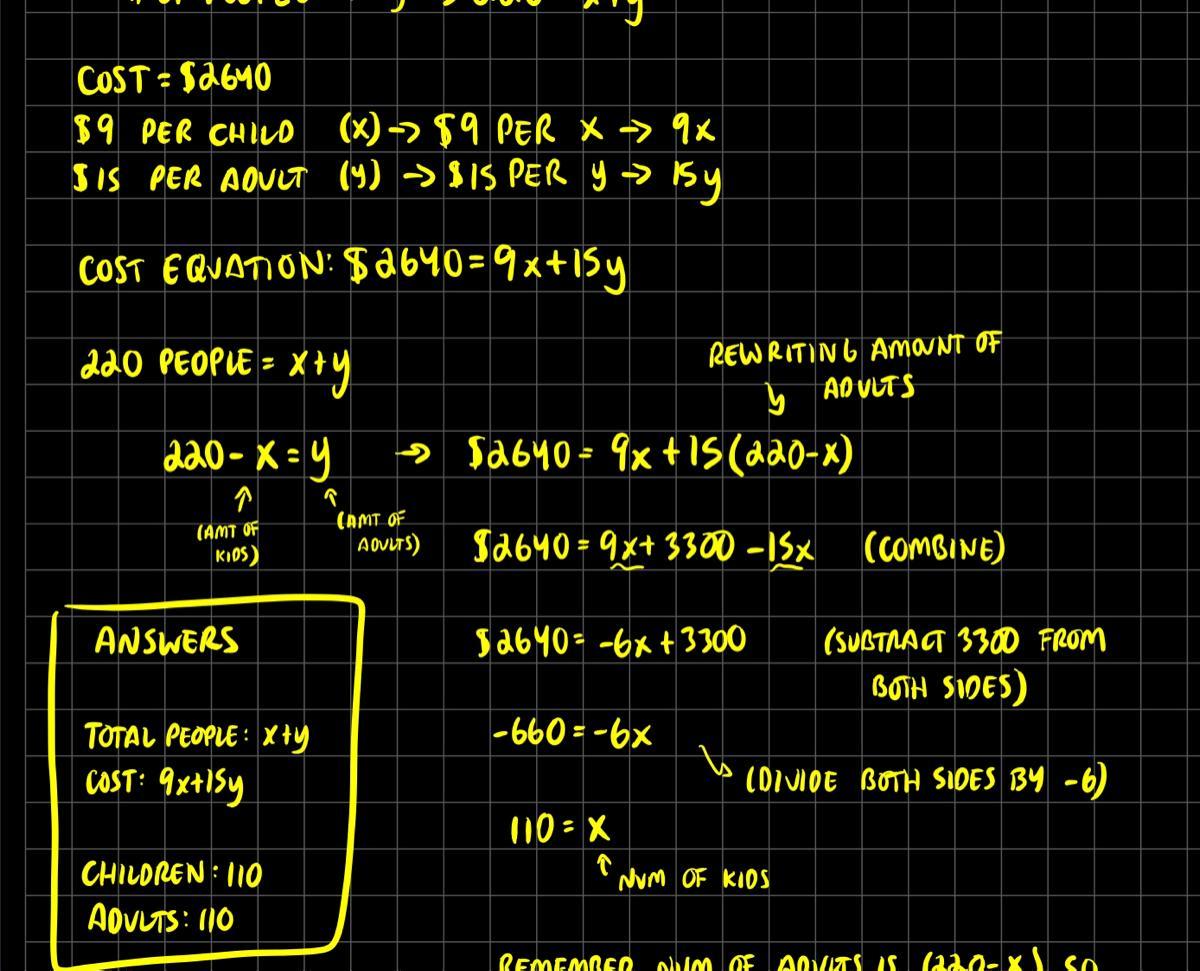 COST = $2640
$9 PER CHILD (x) → $9 PER x → 9x
$15 PER ADULT (y) → $15 PER y → 15y
COST EQUATION: $2640 = 9x+15y
220 PEOPLE = x+y
REWRITING AMOUNT OF
ADULTS
220 - x = y → $2640 = 9x + 15(220-x)
(AMT OF
KIDS)
(AMT OF
ADULTS)
$2640 = 9x + 3300 - 15x (COMBINE)
$2640 = -6x + 3300 (SUBTRACT 3300 FROM
BOTH SIDES)
-660 = -6x
(DIVIDE BOTH SIDES BY -6)
110 = x
↑ NUM OF KIDS
ANSWERS
TOTAL PEOPLE: x+y
COST: 9x+15y
CHILDREN: 110
ADULTS: 110
REMEMBER NUM OF ADULTS IS (220-x) SO